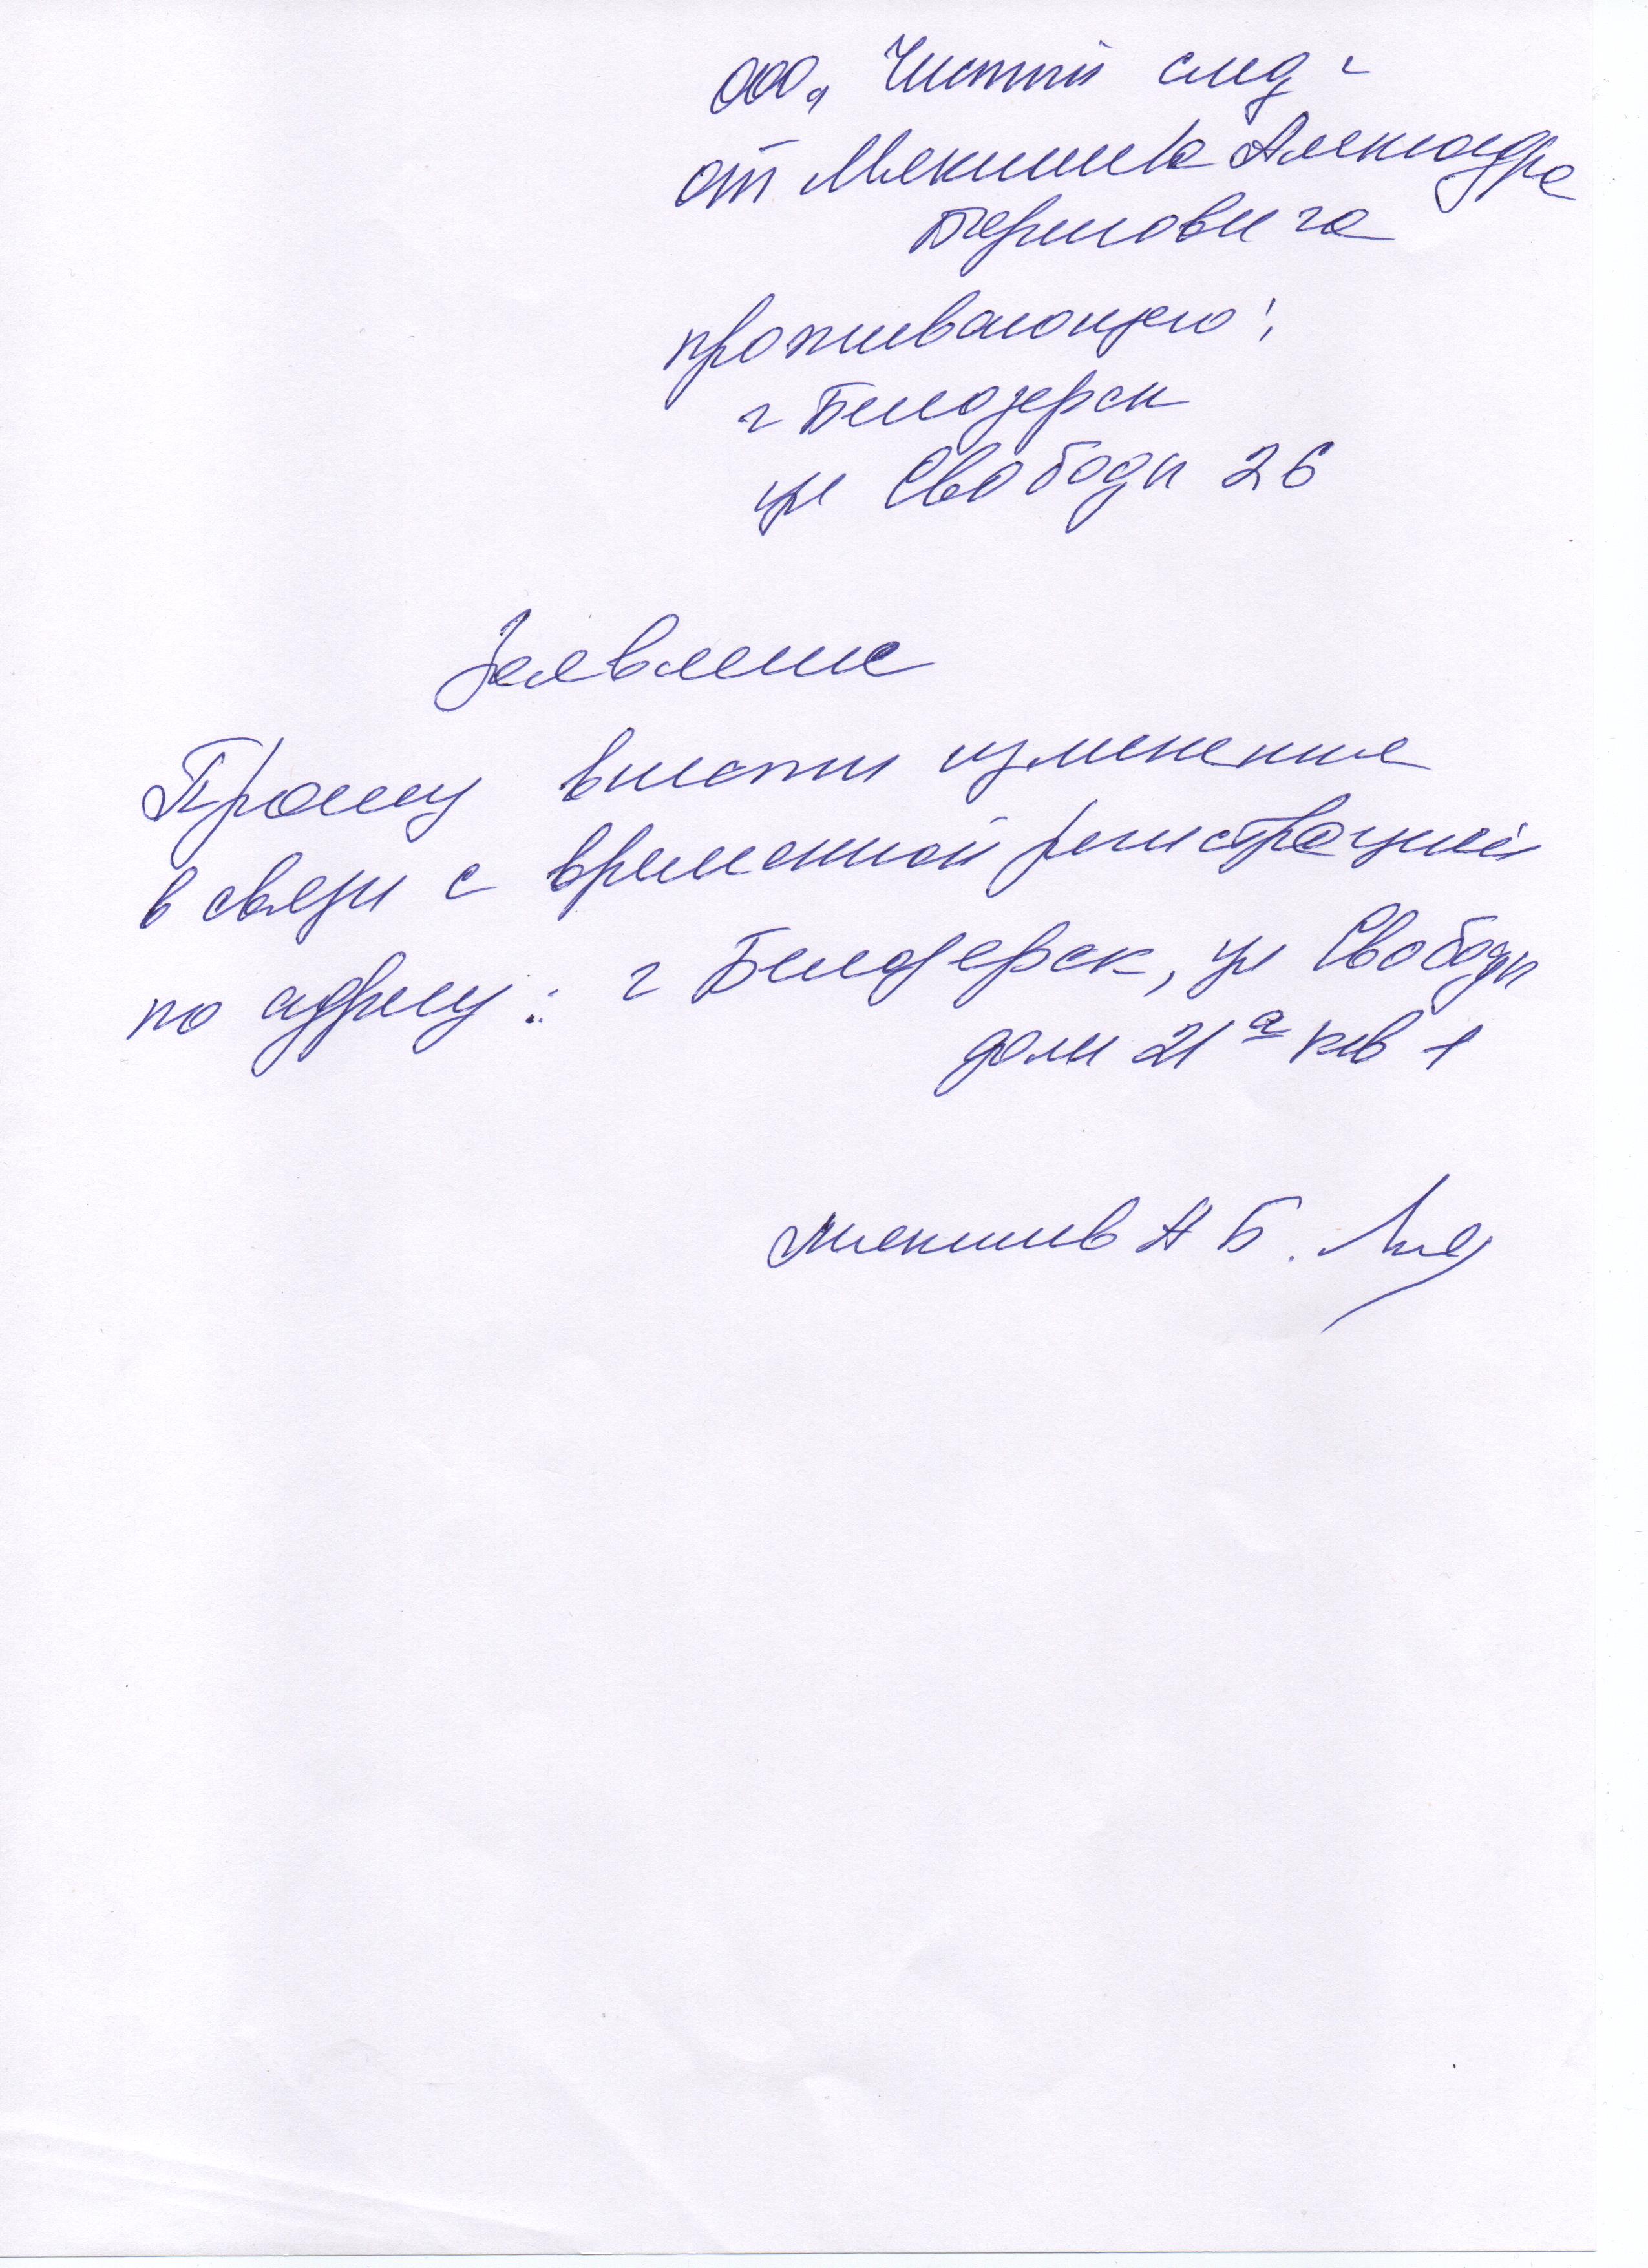 ООО „Чистый след"
от Мякишева Александра
Борисовича
проживающего:
г Белозерск
ул Свободы 26
Заявление
Прошу внести изменение
в связи с временной регистрацией
по адресу: г Белозерск, ул Свободы
дом 21а кв 1
Мякишев А Б.